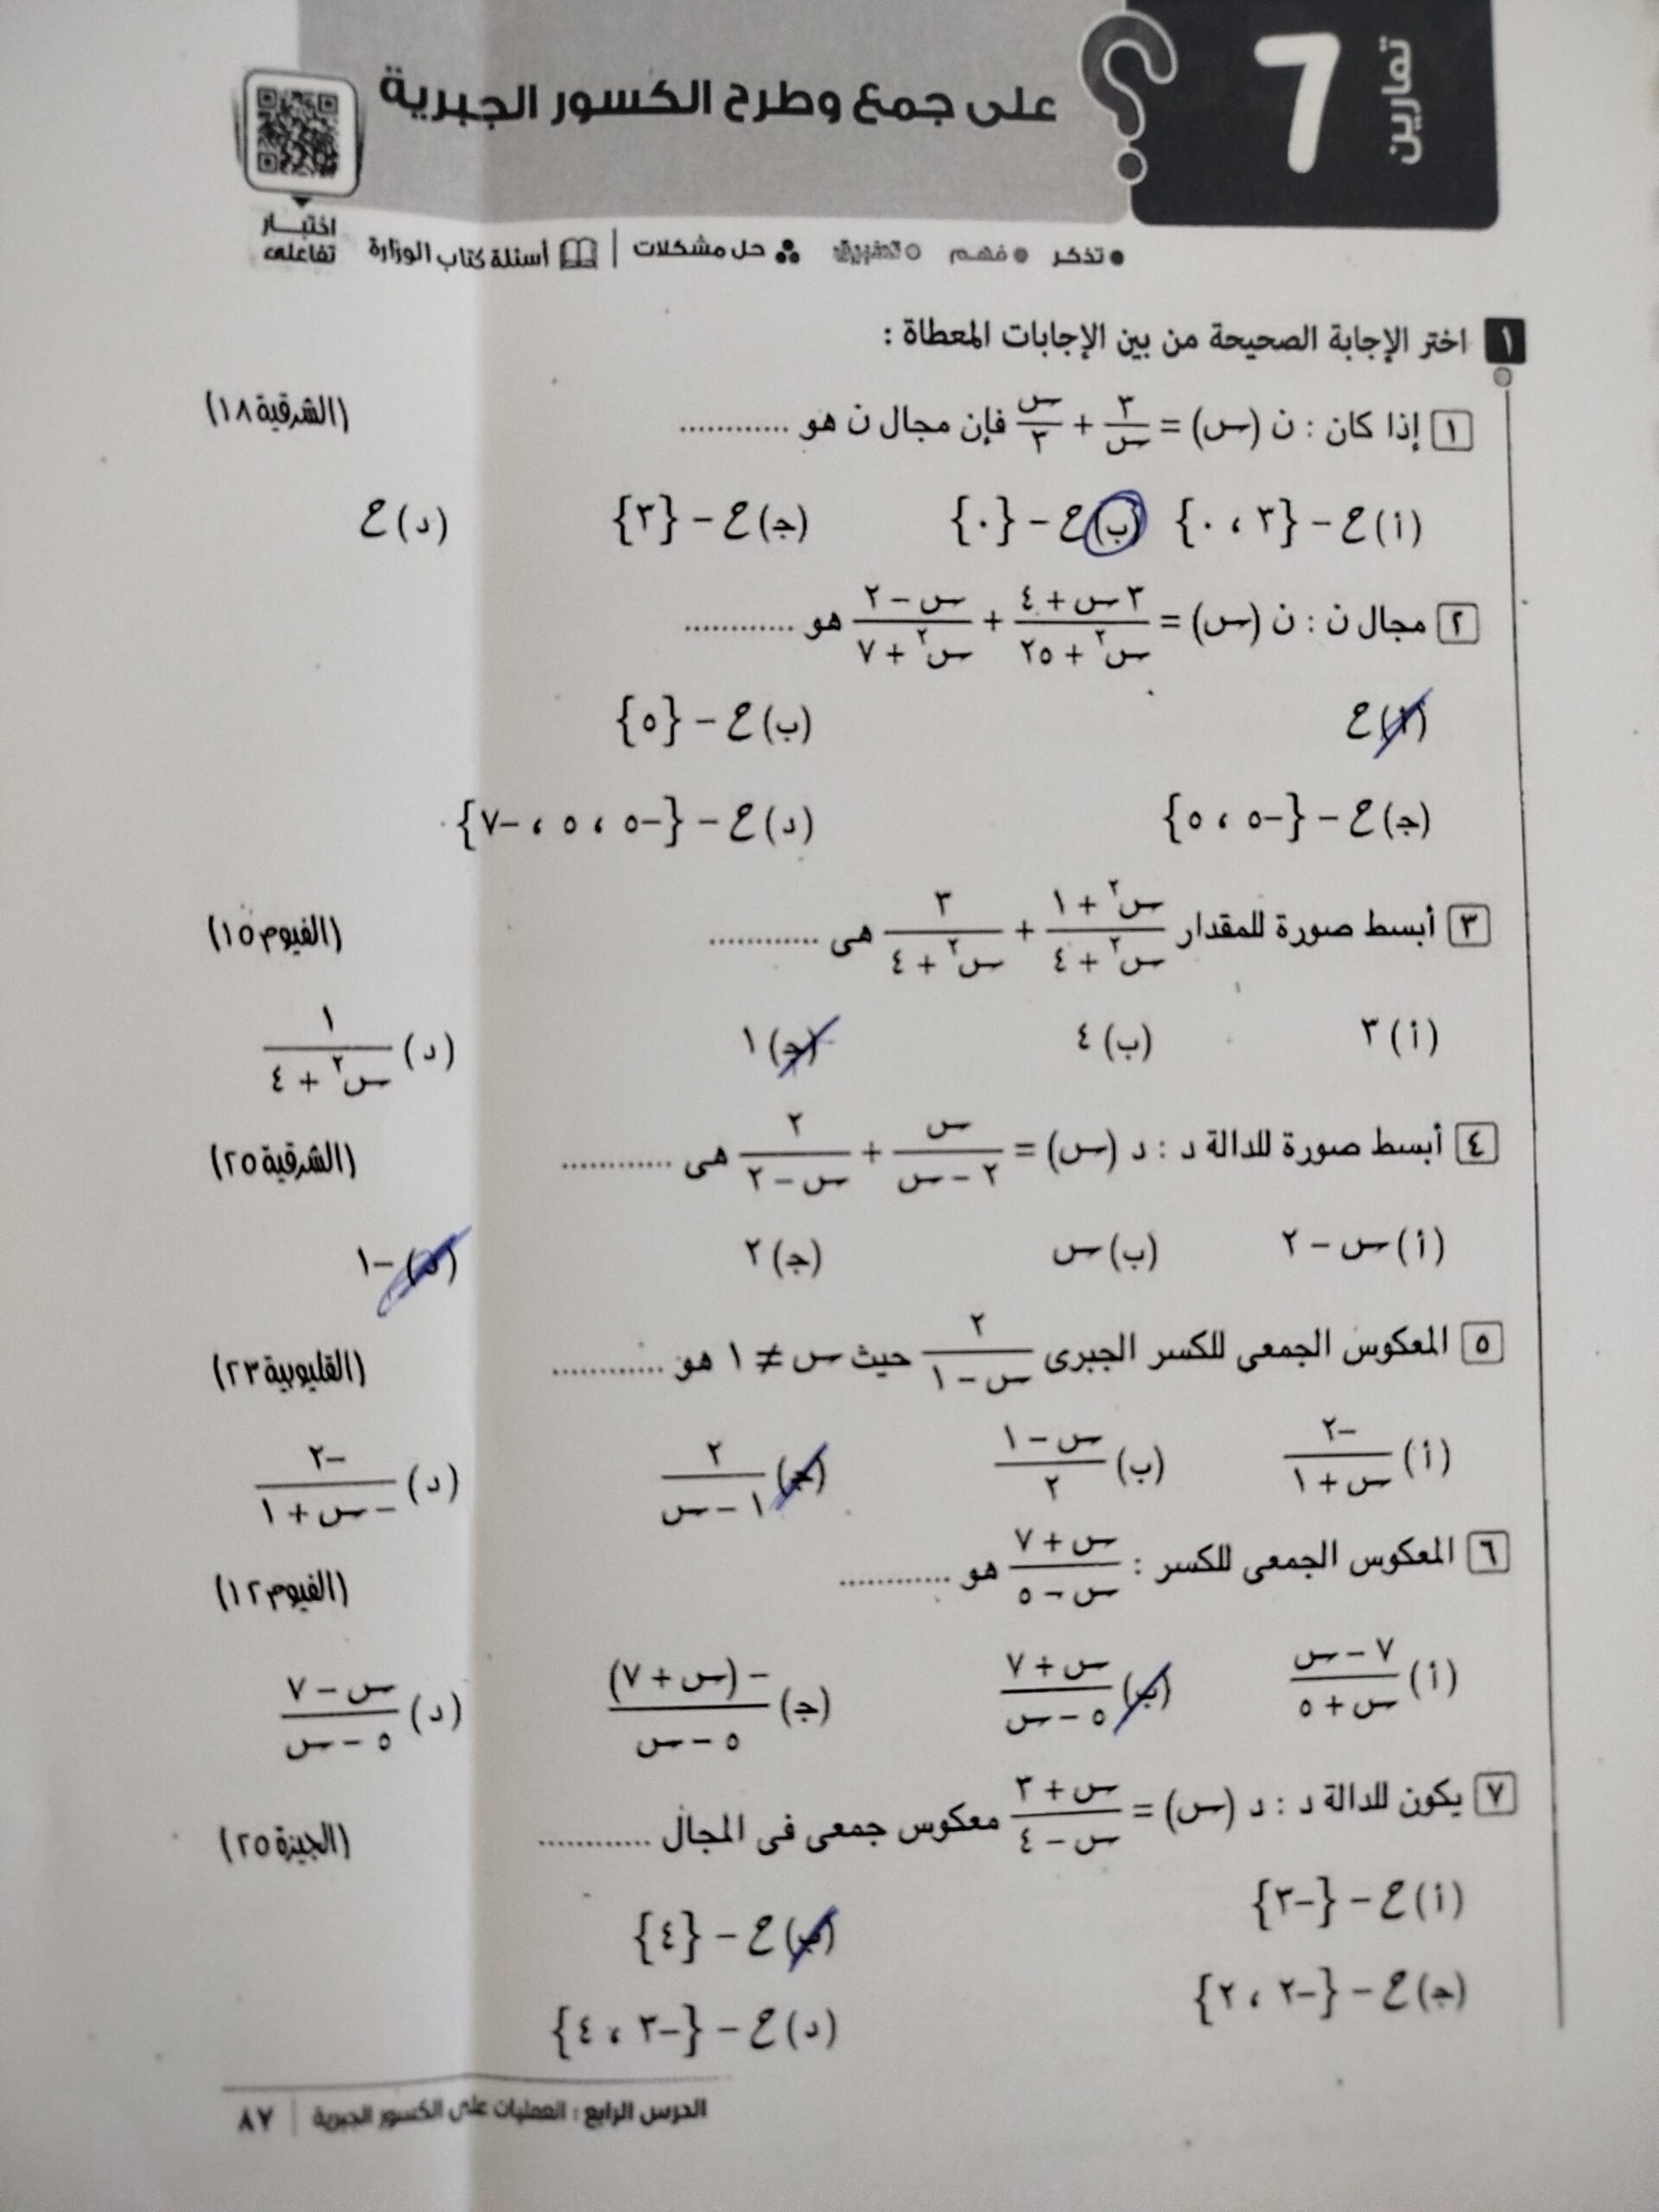 تمارين 7
على جمع وطرح الكسور الجبرية
اختبــار تفاعلى
• تذكر • فهم ○ تطبيق حل مشكلات | أسئلة كتاب الوزارة
١ اختر الإجابة الصحيحة من بين الإجابات المعطاة :
١ إذا كان : ن (س) = ٣/س + س/٣ فإن مجال ن هو ............ (الشرقية ١٨)
(أ) ح – {٣ ، ٠} (ب) ح – {٠} (جـ) ح – {٣} (د) ح
٢ مجال ن : ن (س) = (٣ س + ٤)/(س٢ + ٢٥) + (س – ٢)/(س٢ + ٧) هو ............
(أ) ح (ب) ح – {٥}
(جـ) ح – {–٥ ، ٥} (د) ح – {–٥ ، ٥ ، –٧}
٣ أبسط صورة للمقدار (س٢ + ١)/(س٢ + ٤) + ٣/(س٢ + ٤) هى ............ (الفيوم ١٥)
(أ) ٣ (ب) ٤ (جـ) ١ (د) ١/(س٢ + ٤)
٤ أبسط صورة للدالة د : د (س) = س/(٢ – س) + ٢/(س – ٢) هى ............ (الشرقية ٢٥)
(أ) س – ٢ (ب) س (جـ) ٢ (د) –١
٥ المعكوس الجمعى للكسر الجبرى ٢/(س – ١) حيث س ≠ ١ هو ............ (القليوبية ٢٣)
(أ) –٢/(س + ١) (ب) (س – ١)/٢ (جـ) ٢/(١ – س) (د) –٢/(– س + ١)
٦ المعكوس الجمعى للكسر : (س + ٧)/(س – ٥) هو ............ (الفيوم ١٢)
(أ) (٧ – س)/(س + ٥) (ب) (س + ٧)/(٥ – س) (جـ) – (س + ٧)/(٥ – س) (د) (س – ٧)/(٥ – س)
٧ يكون للدالة د : د (س) = (س + ٣)/(س – ٤) معكوس جمعى فى المجال ............ (الجيزة ٢٥)
(أ) ح – {–٣} (ب) ح – {٤}
(جـ) ح – {–٢ ، ٢} (د) ح – {–٣ ، ٤}
الدرس الرابع : العمليات على الكسور الجبرية | ٨٧